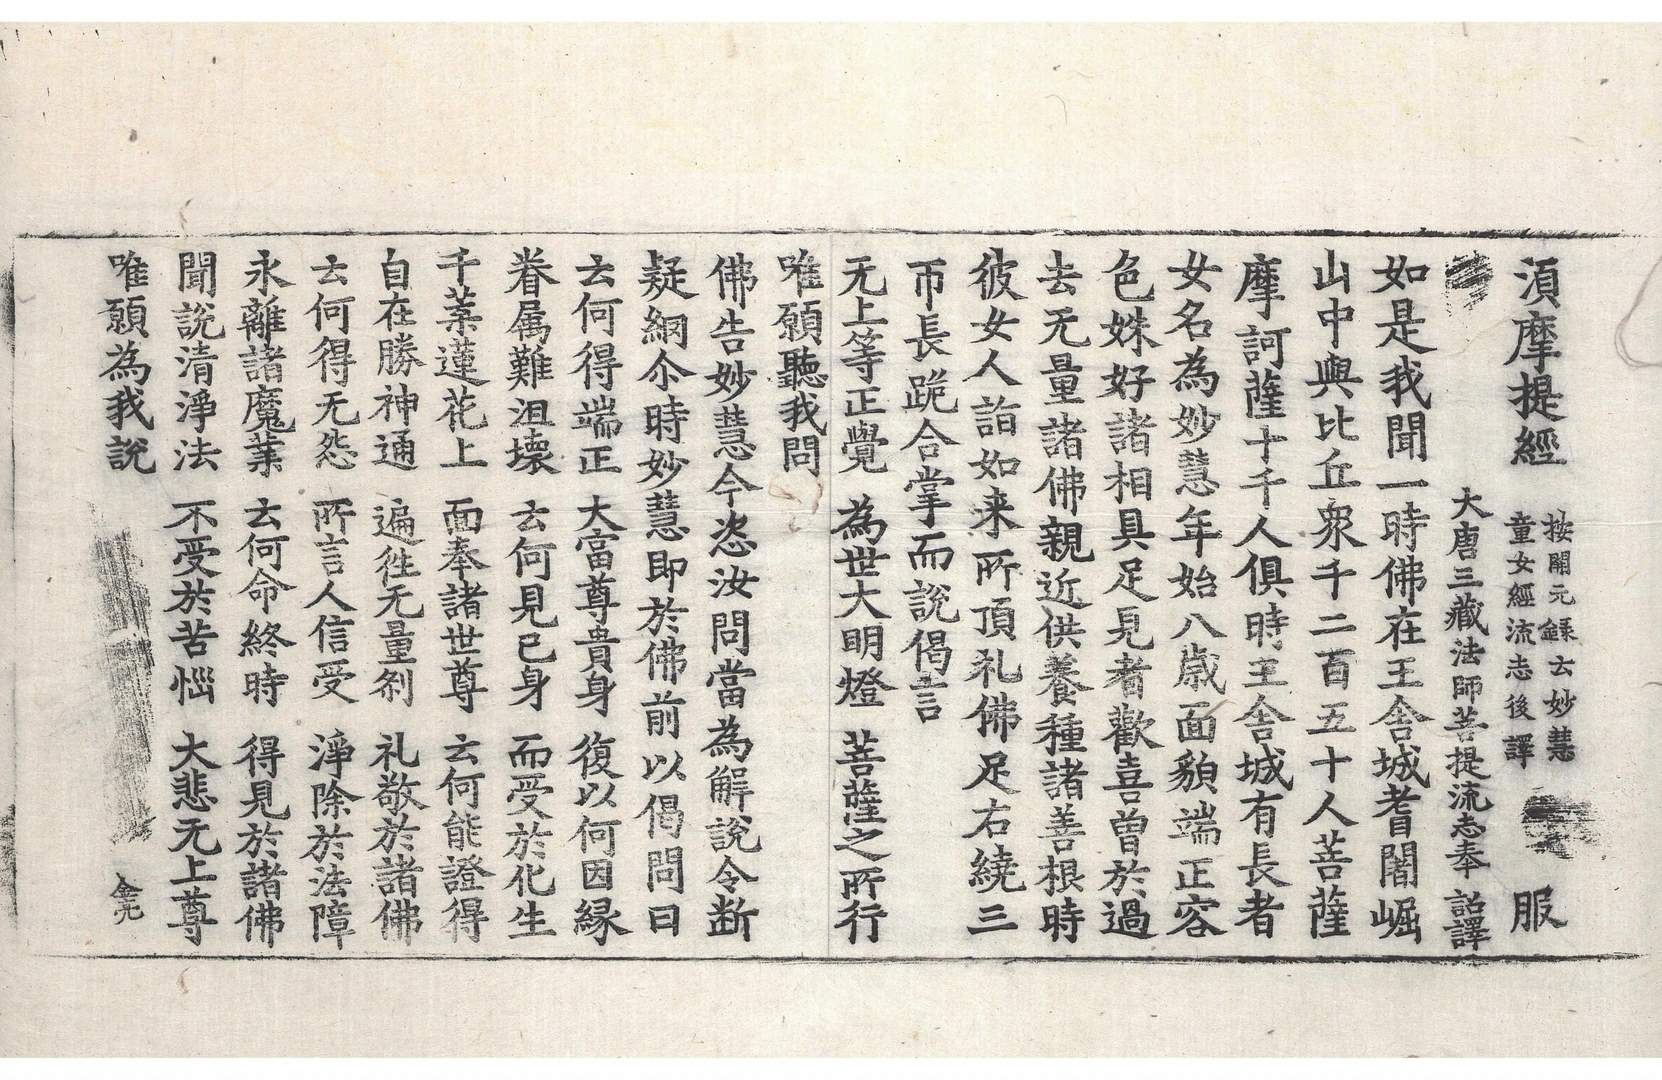 湏摩提經 按開元錄云妙慧
童女經流志後譯 服
大唐三藏法師菩提流志奉 詔譯
如是我聞一時佛在王舍城耆闍崛
山中與比丘衆千二百五十人菩薩
摩訶薩十千人俱時王舍城有長者
女名為妙慧年始八歲面貌端正容
色姝好諸相具足見者歡喜曽於過
去无量諸佛親近供養種諸善根時
彼女人詣如来所頂礼佛足右繞三
帀長跪合掌而說偈言
无上等正覺 為世大明燈 菩薩之所行
唯願聽我問
佛告妙慧今恣汝問當為解說令断
疑網尒時妙慧即於佛前以偈問曰
云何得端正 大富尊貴身 復以何因縁
眷属難沮壊 云何見己身 而受於化生
千葉蓮花上 面奉諸世尊 云何能證得
自在勝神通 遍徃无量刹 礼敬於諸佛
云何得无怨 所言人信受 淨除於法障
永離諸魔業 云何命終時 得見於諸佛
聞說清淨法 不受於苦惱 大悲无上尊
唯願為我說